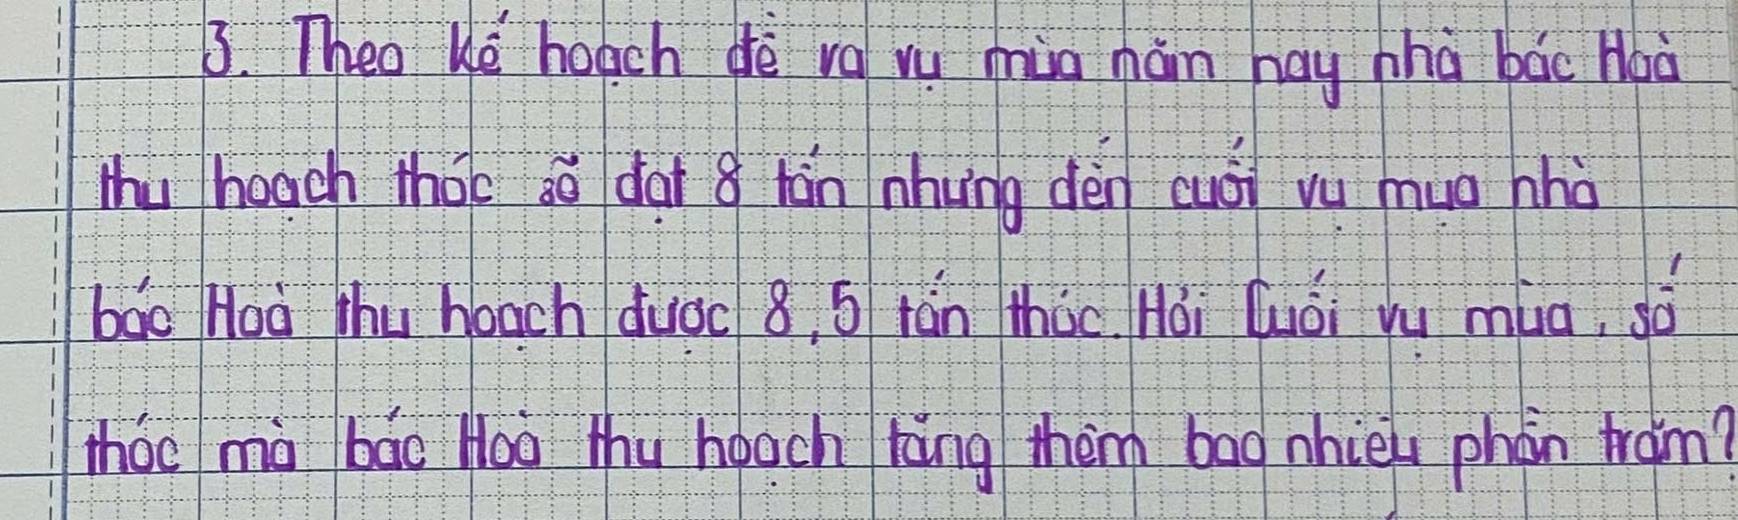 3. Theo kế hoạch đề ra vụ mùa năm nay nhà bác Hoà
thu hoạch thóc sẽ đạt 8 tấn nhưng đến cuối vụ mụa nhà
bác Hoà thu hoạch được 8,5 tấn thóc. Hỏi Cuối vụ mùa, số
thóc mà bác Hoà thu hoạch tăng thêm bao nhiêu phần trăm?